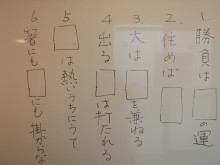 1.勝負は□の運
2.住めば□
3.大は□を兼ねる
4.出る□は打たれる
5.□は熱いうちにうて
6.箸にも□にも掛からな